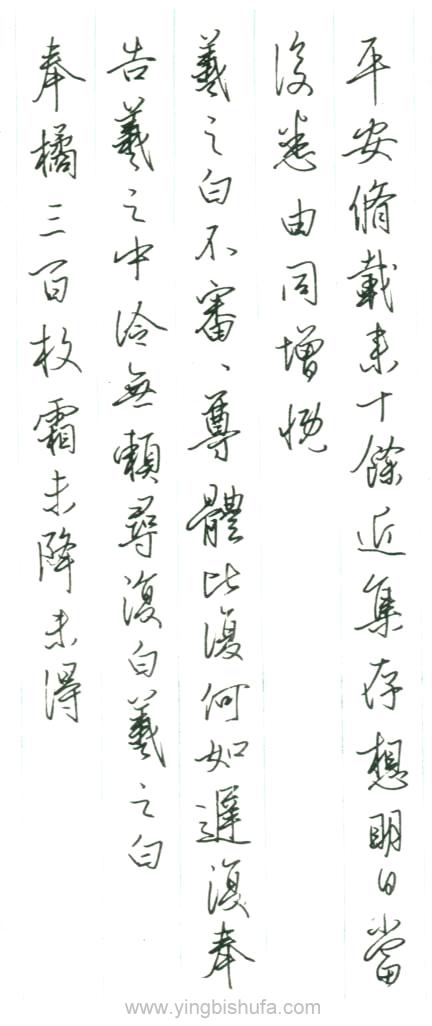 平安脩載来十餘近集存想明日當
復悉由同增慨
羲之白不審、尊體比復何如遲復奉
告羲之中冷無賴尋復白羲之白
奉橘三百枚霜未降未得
www.yingbishufa.com